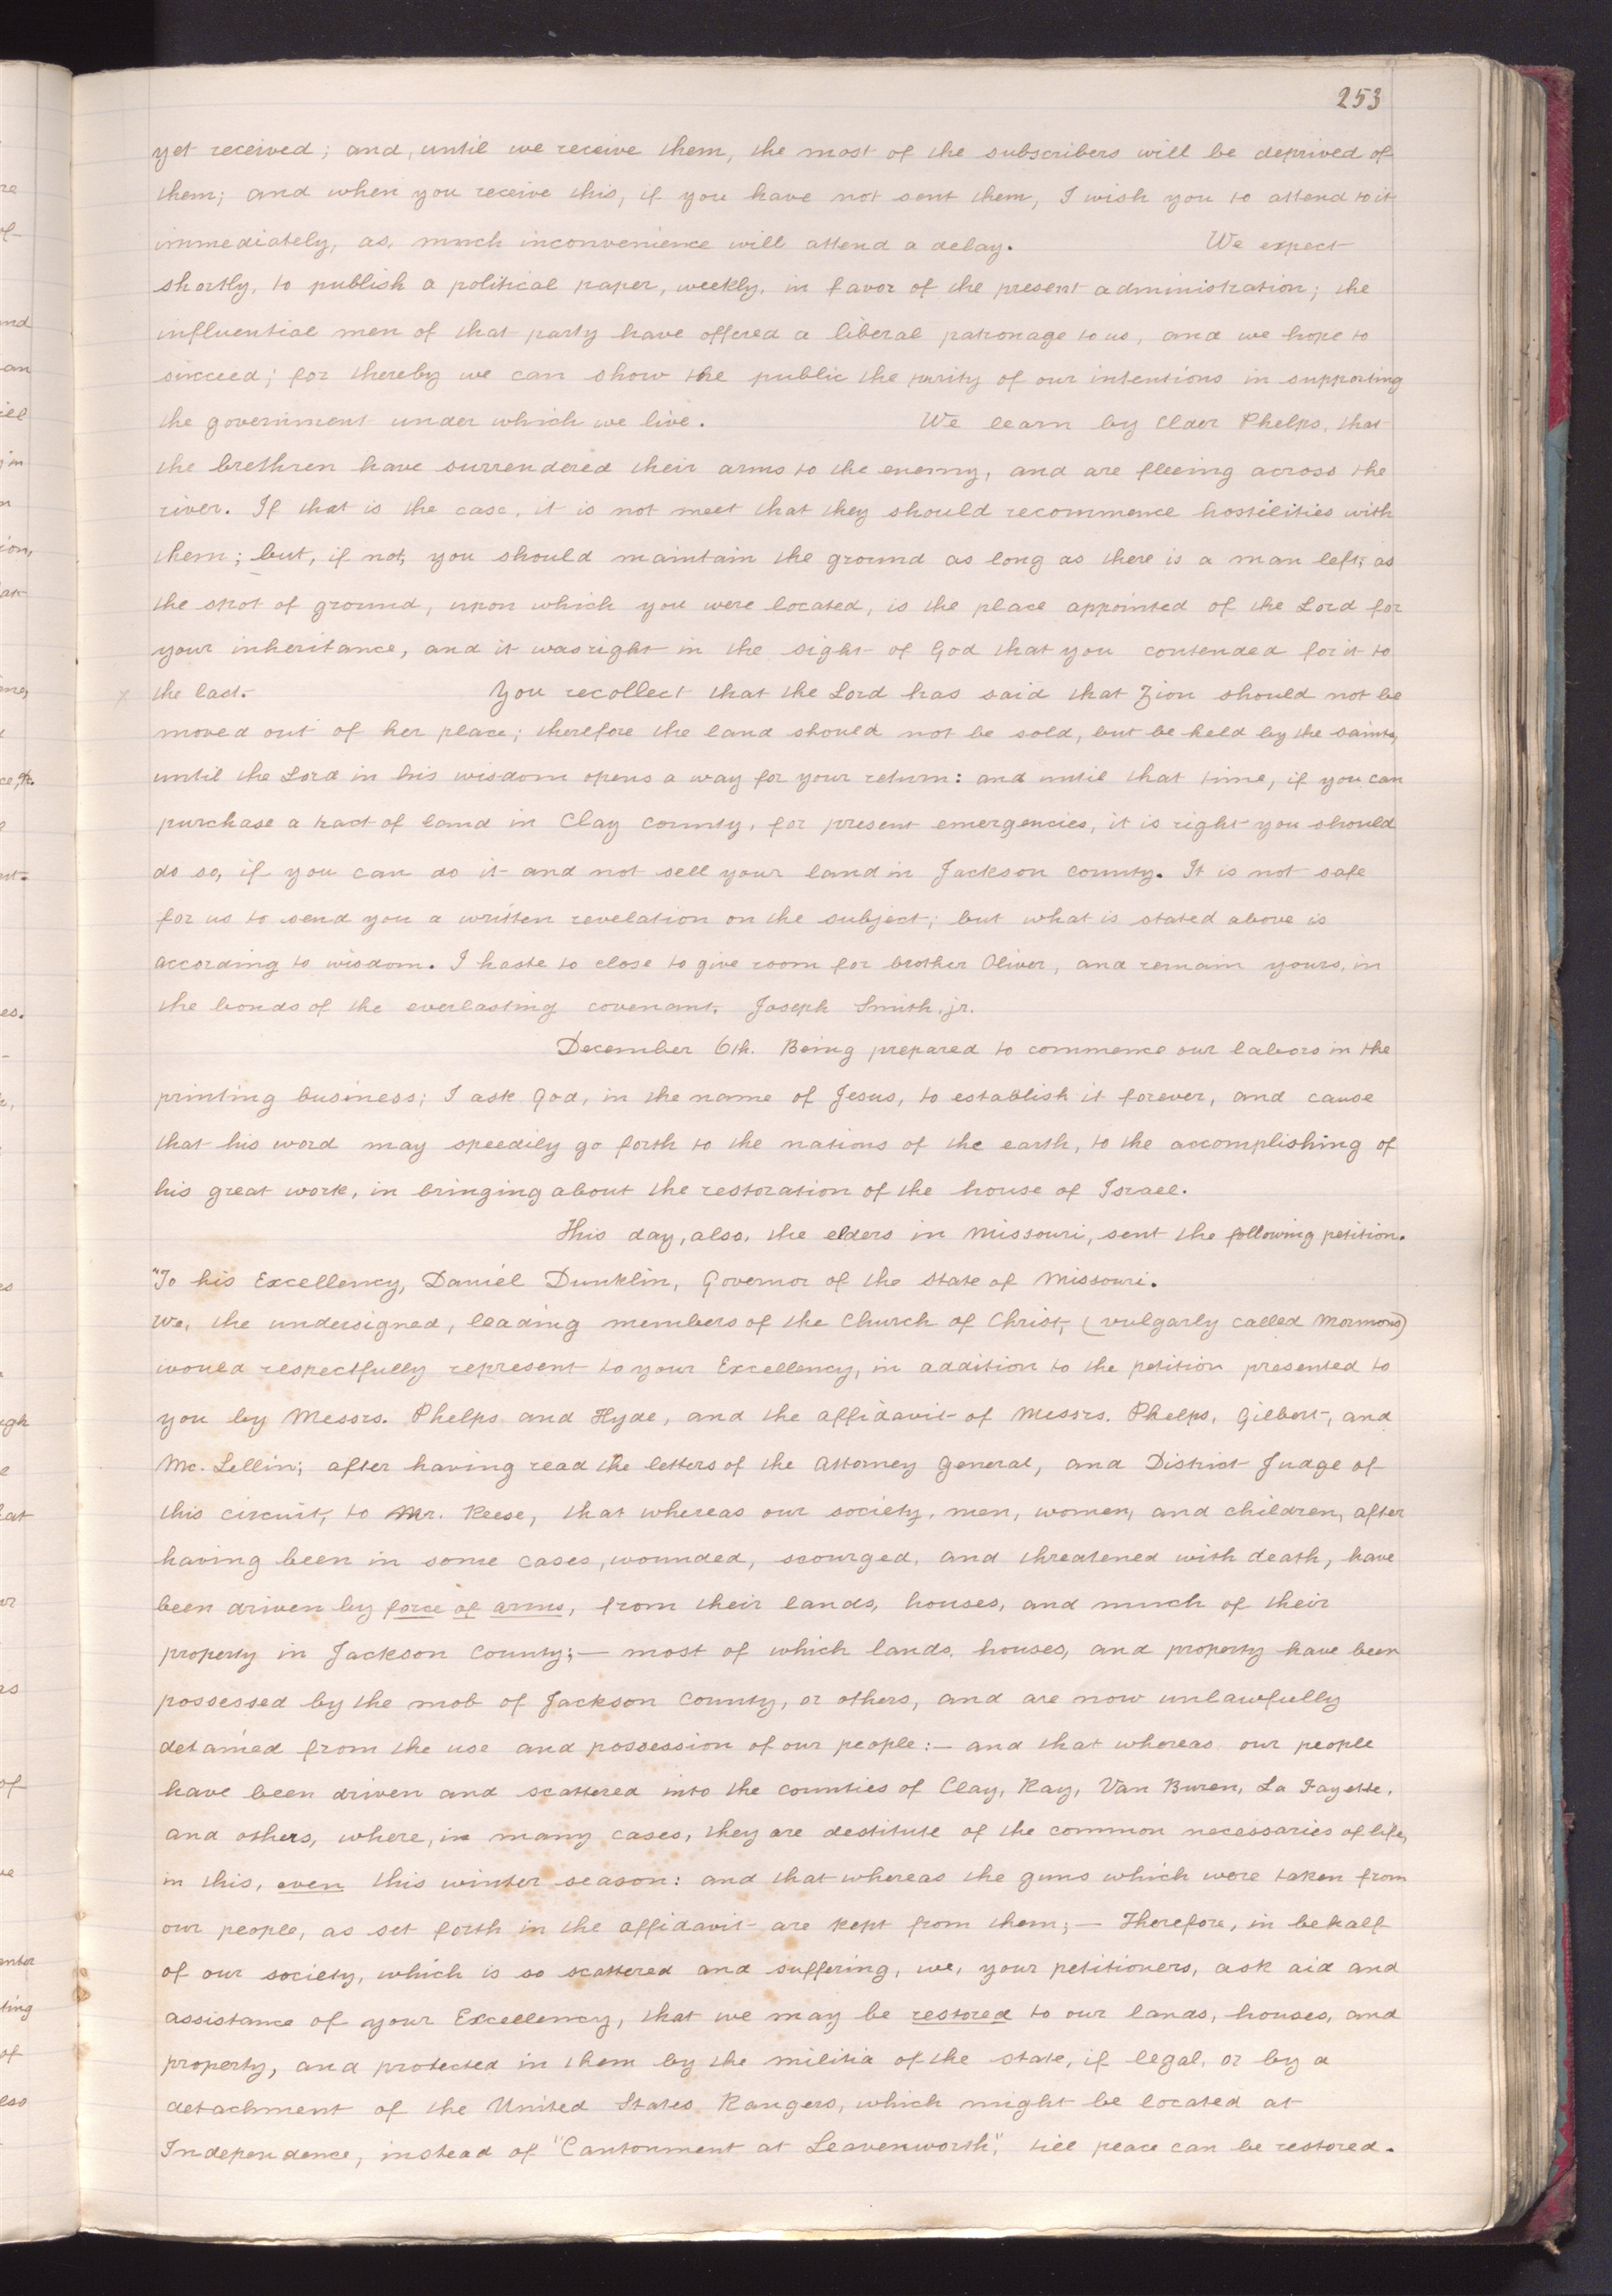 253
yet received; and, until we receive them, the most of the subscribers will be deprived of
them; and when you receive this, if you have not sent them, I wish you to attend to it
immediately, as, much inconvenience will attend a delay. We expect
shortly, to publish a political paper, weekly, in favor of the present administration; the
influential men of that party have offered a liberal patronage to us, and we hope to
succeed; for thereby we can show the public the purity of our intentions in supporting
the government under which we live. We learn by Elder Phelps, that
the brethren have surrendered their arms to the enemy, and are fleeing across the
river. If that is the case, it is not meet that they should recommence hostilities with
them; but, if not, you should maintain the ground as long as there is a man left; as
the spot of ground, upon which you were located, is the place appointed of the Lord for
your inheritance, and it was right in the sight of God that you contended for it to
x the last. You recollect that the Lord has said that Zion should not be
moved out of her place; therefore the land should not be sold, but be held by the saints,
until the Lord in his wisdom opens a way for your return: and until that time, if you can
purchase a tract of land in Clay county, for present emergencies, it is right you should
do so, if you can do it and not sell your land in Jackson county. It is not safe
for us to send you a written revelation on the subject; but what is stated above is
according to wisdom. I haste to close to give room for brother Oliver, and remain yours, in
the bonds of the everlasting covenant, Joseph Smith, jr.
December 6th. Being prepared to commence our labors in the
printing business; I ask God, in the name of Jesus, to establish it forever, and cause
that his word may speedily go forth to the nations of the earth, to the accomplishing of
his great work, in bringing about the restoration of the house of Israel.
This day, also, the elders in Missouri, sent the following petition.
"To his Excellency, Daniel Dunklin, Governor of the State of Missouri.
We, the undersigned, leading members of the Church of Christ, (vulgarly called Mormons)
would respectfully represent to your Excellency, in addition to the petition presented to
you by Messrs. Phelps and Hyde, and the affidavit of Messrs. Phelps, Gilbert, and
Mc. Lellin; after having read the letters of the Attorney General, and District Judge of
this circuit, to Mr. Reese, that whereas our society, men, women, and children, after
having been in some cases, wounded, scourged, and threatened with death, have
been driven by force of arms, from their lands, houses, and much of their
property in Jackson County;— most of which lands, houses, and property have been
possessed by the mob of Jackson County, or others, and are now unlawfully
detained from the use and possession of our people:— and that whereas our people
have been driven and scattered into the counties of Clay, Ray, Van Buren, La Fayette,
and others, where, in many cases, they are destitute of the common necessaries of life,
in this, even this winter season: and that whereas the guns which were taken from
our people, as set forth in the affidavit are kept from them;— Therefore, in behalf
of our society, which is so scattered and suffering, we, your petitioners, ask aid and
assistance of your Excellency, that we may be restored to our lands, houses, and
property, and protected in them by the militia of the state, if legal, or by a
detachment of the United States Rangers, which might be located at
Independence, instead of "Cantonment at Leavenworth", till peace can be restored.